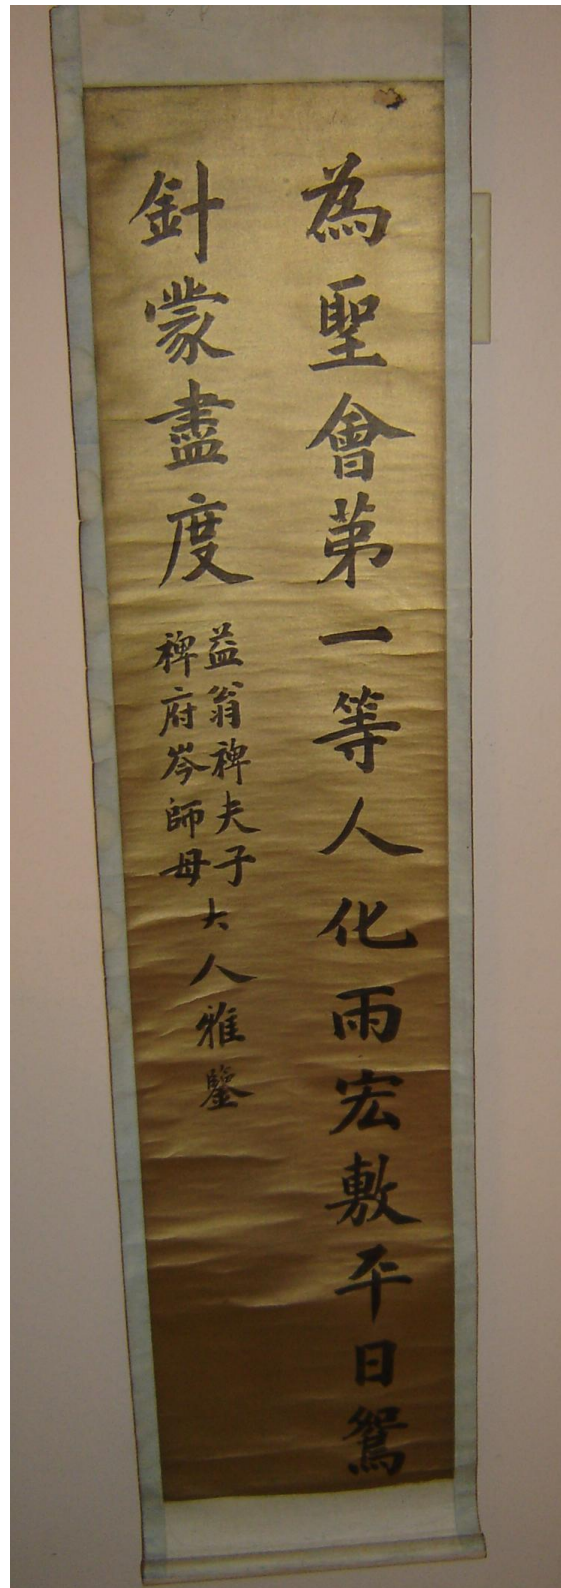 為聖會第一等人化雨宏敷平日鴛
針蒙盡度
益翁裨夫子
裨府岑師母
大人雅鑒